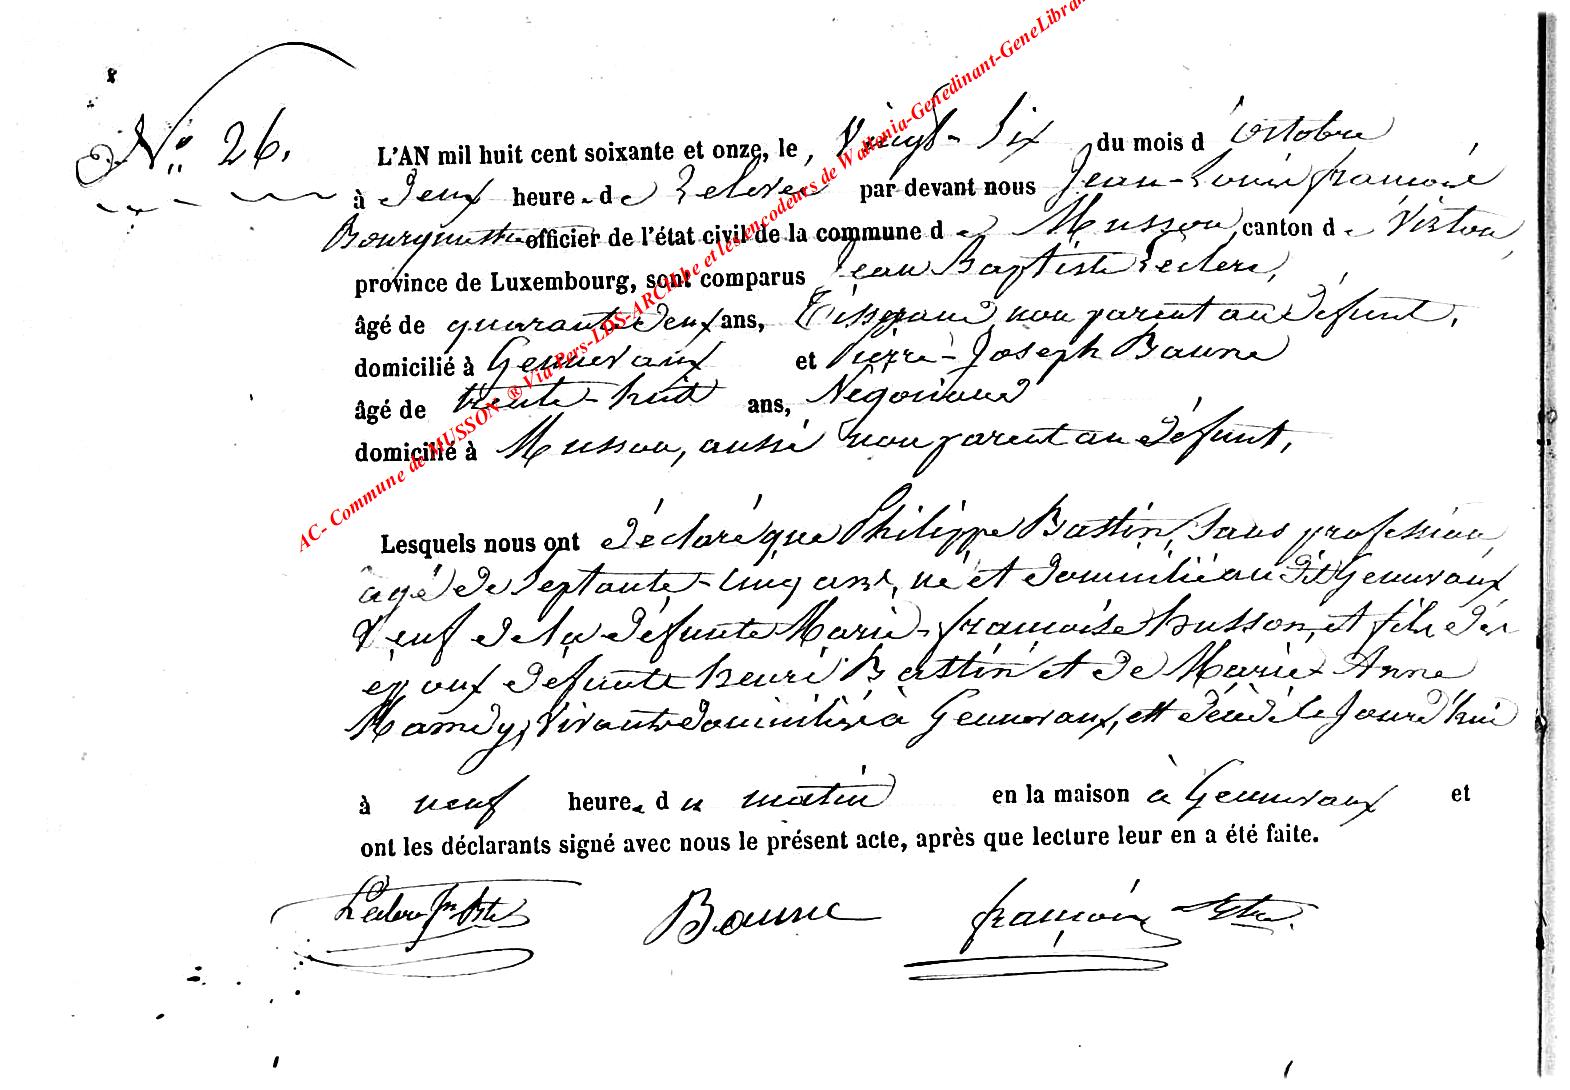 N.º 26.
L'AN mil huit cent soixante et onze, le Vingt-Six du mois d'octobre
à deux heures de relevée par devant nous Jean-Louis françois
Bourgmestre officier de l'état civil de la commune de Musson, canton de Virton,
province de Luxembourg, sont comparus Jean Baptiste Leclerc,
âgé de quarante deux ans, Tisserand, non parent au défunt,
domicilié à Gennevaux et Pierre-Joseph Baune
âgé de trente-huit ans, Négociand
domicilié à Musson, aussi non parent au défunt,
Lesquels nous ont déclaré que Philippe Bastin, Sans profession,
agé de Septante-Cinq ans, né et domicilié au dit Gennevaux
Veuf de la défunte Marie-françoise husson, et fils des
époux défunts henri Bastin et de Marie Anne
vivants domiciliés à Gennevaux, est décédé le Jourd'hui
à neuf heures du matin en la maison à Gennevaux et
ont les déclarants signé avec nous le présent acte, après que lecture leur en a été faite.
Leclerc Jn Bte Baune françois
AC- Commune de MUSSON ® Via Pers-LDS-ARCHbe et les encodeurs de Wallonia-Genedinant-GeneLibra